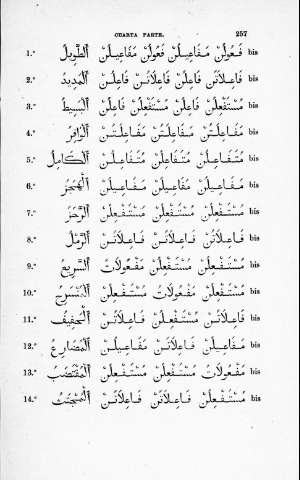 CUARTA PARTE. 257
1.ª اَلطَّوِيلُ فَعُولُنْ مَفَاعِيلُنْ فَعُولُنْ مَفَاعِيلُنْ bis
2.ª اَلْمَدِيدُ فَاعِلَاتُنْ فَاعِلُنْ فَاعِلَاتُنْ فَاعِلُنْ bis
3.ª اَلْبَسِيطُ مُسْتَفْعِلُنْ فَاعِلُنْ مُسْتَفْعِلُنْ فَاعِلُنْ bis
4.ª اَلْوَافِرُ مُفَاعَلَتُنْ مُفَاعَلَتُنْ مُفَاعَلَتُنْ bis
5.ª اَلْكَامِلُ مُتَفَاعِلُنْ مُتَفَاعِلُنْ مُتَفَاعِلُنْ bis
6.ª اَلْهَجَزُ مَفَاعِيلُنْ مَفَاعِيلُنْ مَفَاعِيلُنْ bis
7.ª اَلرَّجَزُ مُسْتَفْعِلُنْ مُسْتَفْعِلُنْ مُسْتَفْعِلُنْ bis
8.ª اَلرَّمَلُ فَاعِلَاتُنْ فَاعِلَاتُنْ فَاعِلَاتُنْ bis
9.ª اَلسَّرِيعُ مُسْتَفْعِلُنْ مُسْتَفْعِلُنْ مَفْعُولَاتُ bis
10.ª اَلْمُنْسَرِحُ مُسْتَفْعِلُنْ مَفْعُولَاتُ مُسْتَفْعِلُنْ bis
11.ª اَلْخَفِيفُ فَاعِلَاتُنْ مُسْتَفْعِلُنْ فَاعِلَاتُنْ bis
12.ª اَلْمُضَارِعُ مَفَاعِيلُنْ فَاعِلَاتُنْ مَفَاعِيلُنْ bis
13.ª اَلْمُقْتَضَبُ مَفْعُولَاتُ مُسْتَفْعِلُنْ مُسْتَفْعِلُنْ bis
14.ª اَلْمُجْتَثُّ مُسْتَفْعِلُنْ فَاعِلَاتُنْ فَاعِلَاتُنْ bis